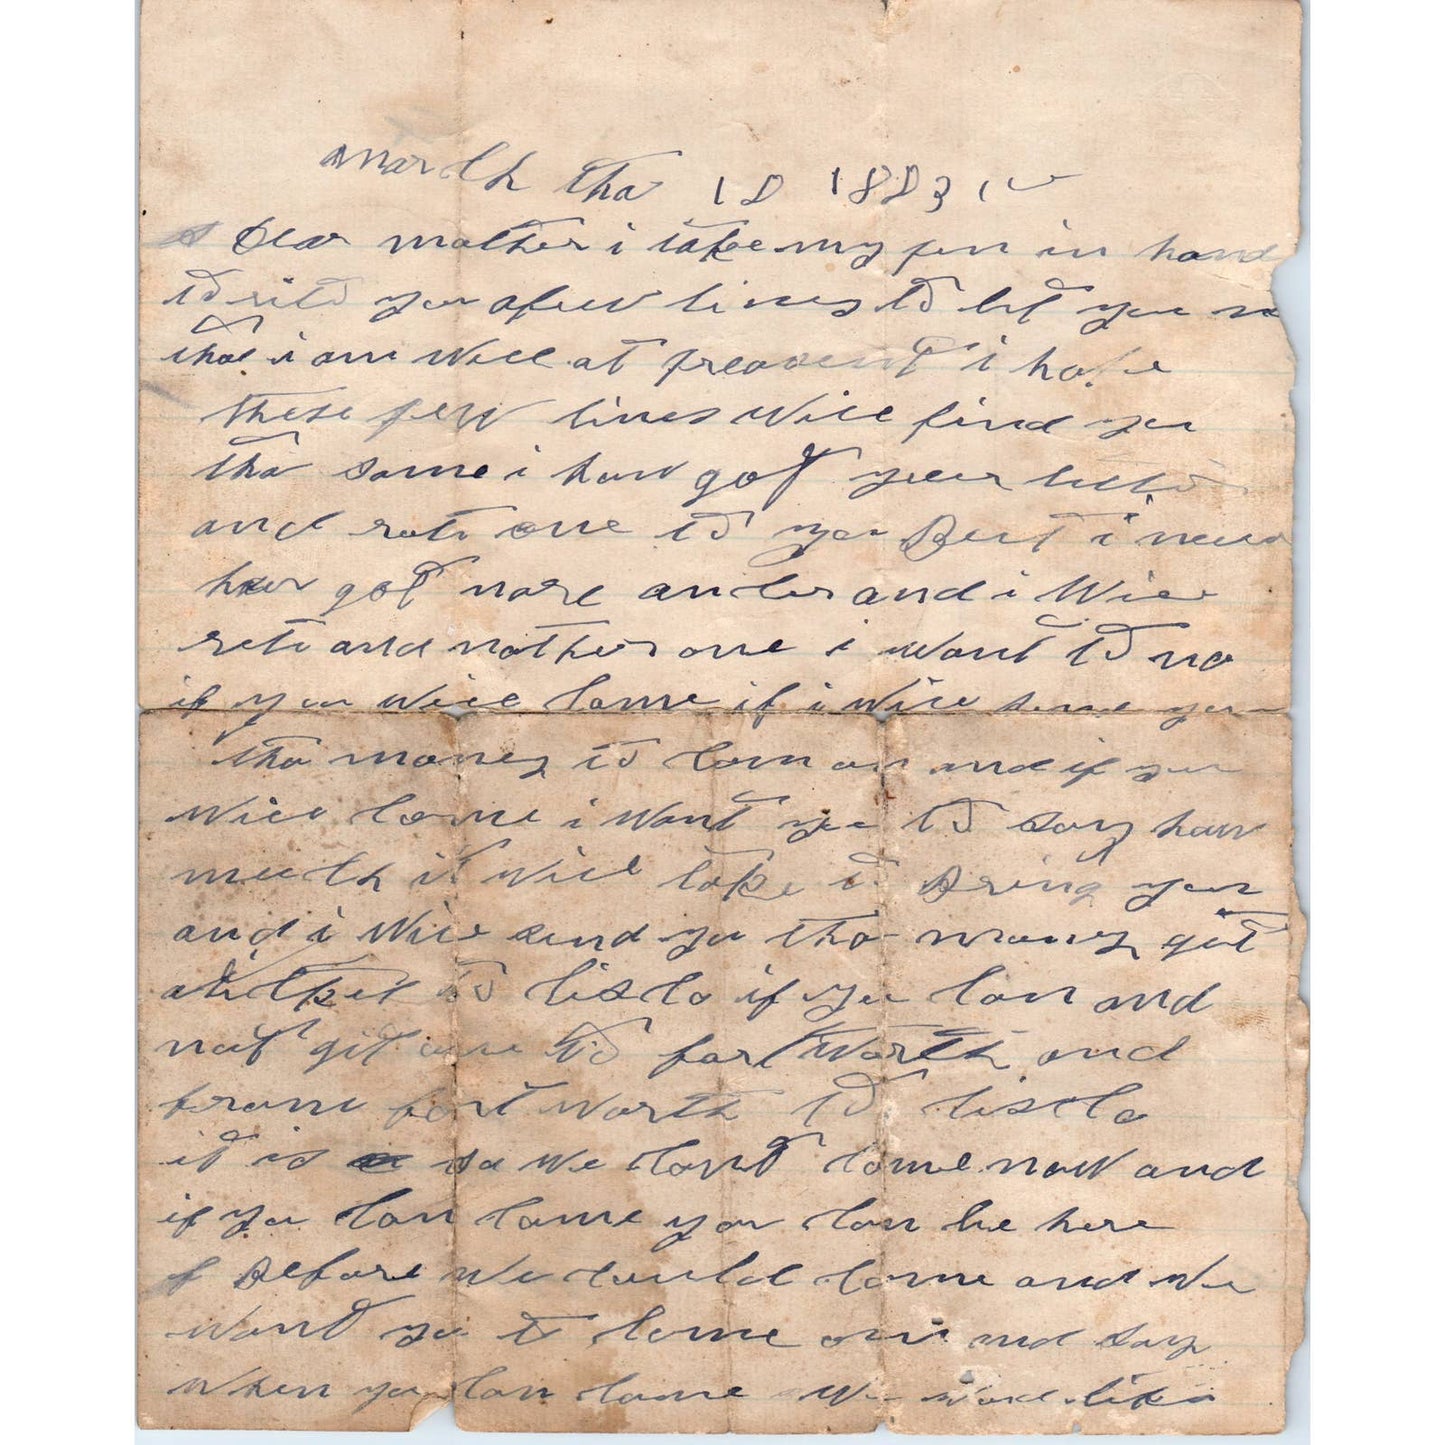 march tha 18 1883
Dear mother i take my pen in hand
to rite you a few lines to let you no
that i am well at preasent i hope
these few lines will find you
tha same i hav got your letter
and rote one to you But i never
hav got nore ancler and i Will
rite and nother one i want to no
if you will come if i will send you
tha money to come on and if you
will come i want you to say how
much it will take to Bring you
and i will send you tha money git
a ticket to Cisco if you can and
not git one to fort Worth and
from fort worth to Ciscto
it is so we cant come now and
if you can come you can be here
Before we could come and we
want you to come on and say
when you can come we wold like